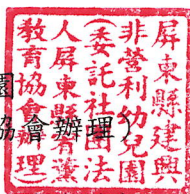 屏東縣建興
非營利幼兒園
(委託社團法
人屏東縣
教育協會辦理)
園
協會辦理)